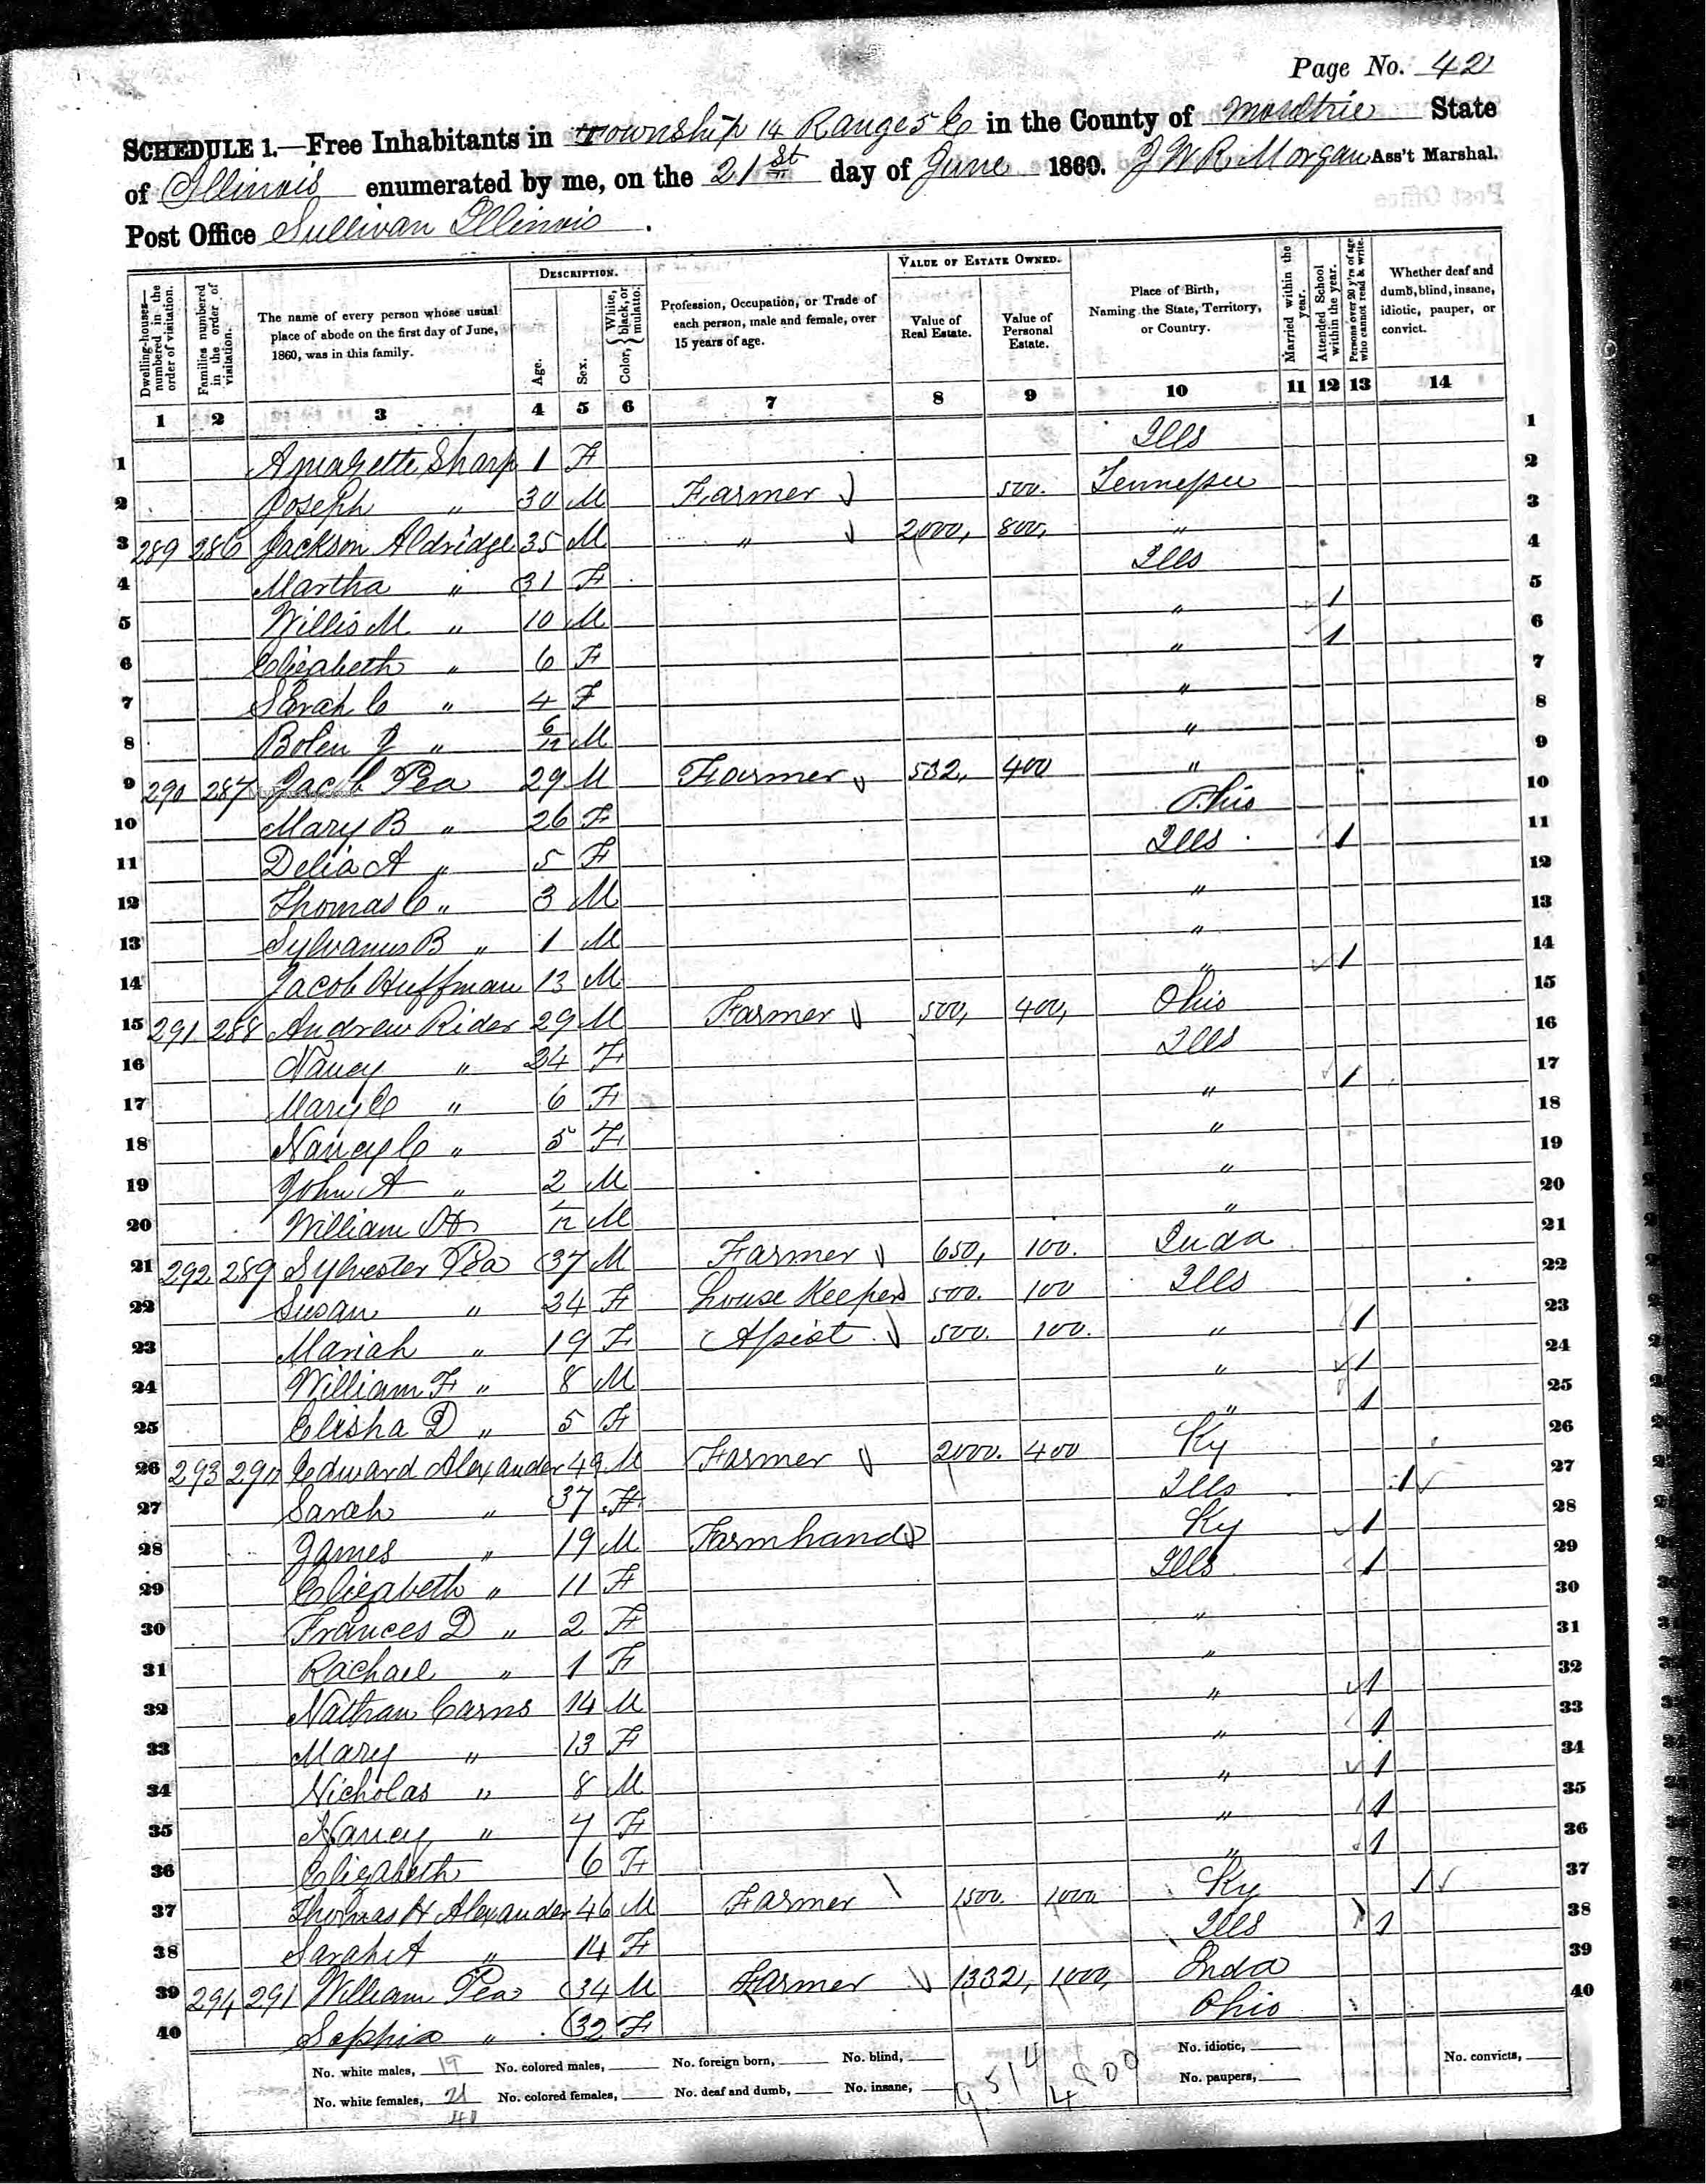 Page No. 42
SCHEDULE 1.—Free Inhabitants in township 14 Range 5 E in the County of Moultrie State
of Illinois enumerated by me, on the 21st day of June 1860. J W R Morgan Ass't Marshal.
Post Office Sullivan Illinois.
Dwelling-houses—numbered in the order of visitation. Families numbered in the order of visitation. The name of every person whose usual place of abode on the first day of June, 1860, was in this family. DESCRIPTION. Age. Sex. Color, {White, black, or mulatto. Profession, Occupation, or Trade of each person, male and female, over 15 years of age. VALUE OF ESTATE OWNED. Value of Real Estate. Value of Personal Estate. Place of Birth, Naming the State, Territory, or Country. Married within the year. Attended School within the year. Persons over 20 y'rs of age who cannot read & write. Whether deaf and dumb, blind, insane, idiotic, pauper, or convict.
1 2 3 4 5 6 7 8 9 10 11 12 13 14
1 Sharp 1 F Ills 1
2 Joseph " 30 M Farmer 500. Tennessee 2
3 289 286 Jackson Aldridge 35 M " 2000, 800, " 3
4 Martha " 31 F Ills 4
5 Willis M " 10 M " 1 5
6 Elizabeth " 6 F " 1 6
7 Sarah C " 4 F " 7
8 Bolen J " 6/12 M " 8
9 290 287 Jacob Pea 29 M Farmer 532, 400 " 9
10 Mary B " 26 F Ohio 10
11 Delia A " 5 F Ills 1 11
12 Thomas C " 3 M " 12
13 Sylvanus B " 1 M " 13
14 Jacob Huffman 13 M " 1 14
15 291 288 Andrew Rider 29 M Farmer 500, 400, Ohio 15
16 Nancy " 24 F Ills 16
17 Mary C " 6 F " 1 17
18 Nancy C " 5 F " 18
19 John A " 2 M " 19
20 William 1/12 M " 20
21 292 289 Sylvester Pea 37 M Farmer 650, 100. Inda 21
22 Susan " 34 F house Keeper 500. 100 Ills 22
23 Mariah " 19 F Assist 500. 100. " 1 23
24 William F " 8 M " 1 24
25 Elisha D " 5 F " 1 25
26 293 290 Edward Alexander 49 M Farmer 2000. 400 Ky 26
27 Sarah " 37 F Ills 1 27
28 James " 19 M Farmhand Ky 1 28
29 Elizabeth " 11 F Ills 1 29
30 Frances D " 2 F " 30
31 Rachael " 1 F " 31
32 Nathan Carns 14 M " 1 32
33 Mary " 13 F " 1 33
34 Nicholas " 8 M " 1 34
35 Nancy " 7 F " 1 35
36 Elizabeth 6 F " 1 36
37 Thomas H Alexander 46 M Farmer 1500. 1000 Ky 1 37
38 Sarah A " 14 F Ills 1 38
39 294 291 William Pea 34 M Farmer 1332, 1000, Inda 39
40 Sophia " 32 F Ohio 40
No. white males, 19 No. colored males, No. foreign born, No. blind, No. idiotic, No. convicts,
No. white females, 21 No. colored females, No. deaf and dumb, No. insane, 9514 4800 No. paupers,
40